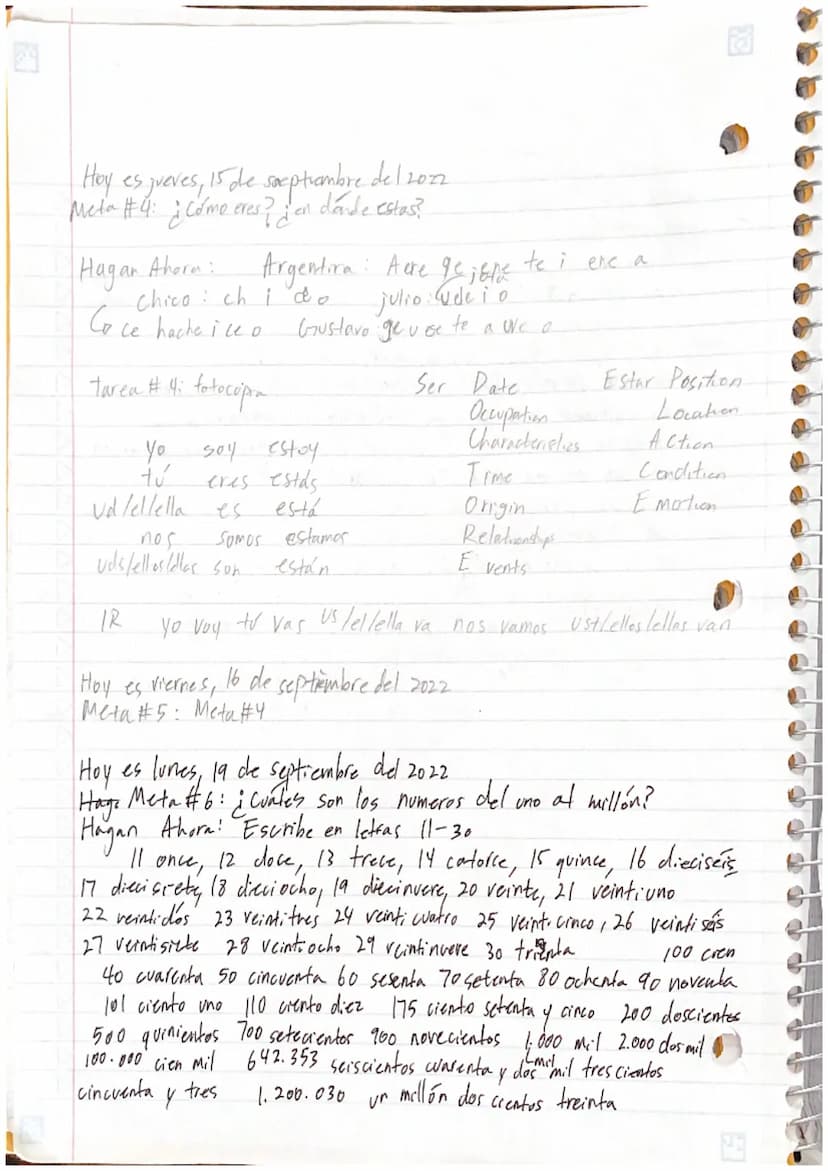 Hoy es jueves, 15 de septiembre del 2022
Meta #4: ¿Cómo eres? ¿en dónde estas?
Hagan Ahora: Argentina: A ere ge te i ene a
chico: ch i o julio:
ce hache i ce o Gustavo ge u ese te a uve o
tarea #4: fotocopia Ser Date Estar Position
Occupation Location
yo soy estoy Characteristics Action
tú eres estás Time Condition
ud/el/ella es está Origin Emotion
nos somos estamos Relationships
uds/ellos/ellas son están Events
IR yo voy tú vas us/el/ella va nos vamos ust/ellos/ellas van
Hoy es viernes, 16 de septiembre del 2022
Meta #5: Meta #4
Hoy es lunes, 19 de septiembre del 2022
Meta #6: ¿Cuáles son los numeros del uno al millón?
Hagan Ahora: Escribe en letras 11-30
11 once, 12 doce, 13 trece, 14 catorce, 15 quince, 16 dieciséis
17 diecisiete, 18 dieciocho, 19 diecinueve, 20 veinte, 21 veintiuno
22 veintidós 23 veintitres 24 veinticuatro 25 veinticinco, 26 veintiséis
27 veintisiete 28 veintiocho 29 veintinueve 30 trienta 100 cien
40 cuarenta 50 cincuenta 60 sesenta 70 setenta 80 ochenta 90 noventa
101 ciento uno 110 ciento diez 175 ciento setenta y cinco 200 doscientos
500 quinientos 700 setecientos 900 novecientos 1,000 mil 2.000 dos mil
100.000 cien mil 642.353 seiscientos cuarenta y dos mil trescientos
cincuenta y tres 1.200.030 un millón dos cientos treinta